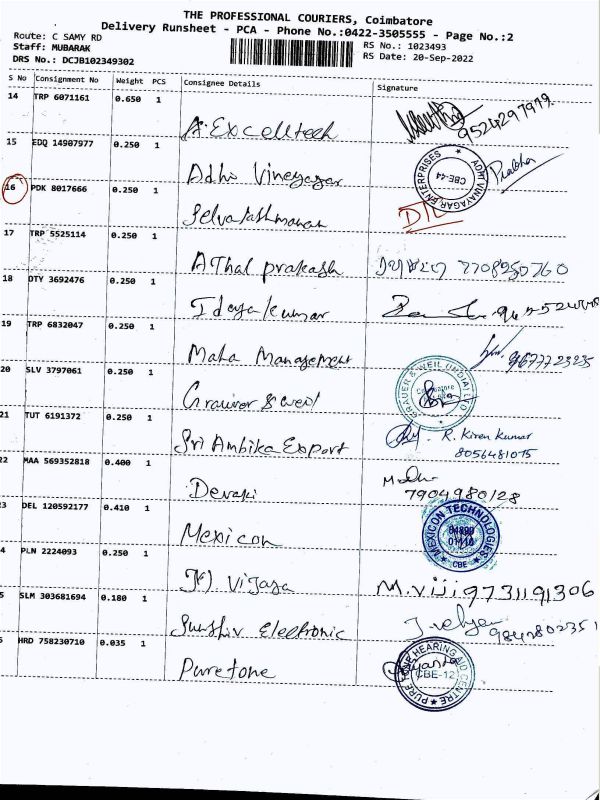 THE PROFESSIONAL COURIERS, Coimbatore
Delivery Runsheet - PCA - Phone No.:0422-3505555 - Page No.:2
Route: C SAMY RD
RS No.: 1023493
Staff: MUBARAK
RS Date: 20-Sep-2022
DRS No.: DCJB102349302
S No Consignment No Weight PCS Consignee Details Signature
14 TRP 6071161 0.650 1
A. Excelltech 9524297979
15 EDQ 14907977 0.250 1
Adhi Vinayagar ADHI VINAYAGAR ENTERPRISES CBE-44 Prabha
16 PDK 8017666 0.250 1
Selvalakshmanan DTL
17 TRP 5525114 0.250 1
A Thal prakash 7708950760
18 OTY 3692476 0.250 1
Idayakumar
19 TRP 6832047 0.250 1
Maha Management 9677723235
20 SLV 3797061 0.250 1
Grauer & weil GRAUER & WEIL (INDIA) LTD Coimbatore
21 TUT 6191372 0.250 1
Sri Ambika Export R. Kiren Kumar
8056481075
22 MAA 569352818 0.400 1
Devaki Madhu
7904980128
23 DEL 120592177 0.410 1
Mexicon MEXICON TECHNOLOGIES CBE
4 PLN 2224093 0.250 1
Vijaya M. Viji 9731191306
5 SLM 303681694 0.180 1
Sunshiv Electronic 9842802351
6 HRD 758230710 0.035 1
Puretone PURE TONE HEARING AID CENTRE CBE-12